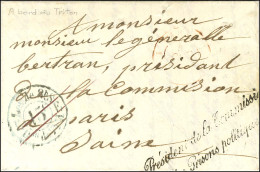 A bord du Triton
A monsieur
monsieur le géneralle
bertran, présidant
la Commision
paris
Saine
Président de la Commissi
des Prisons politiques